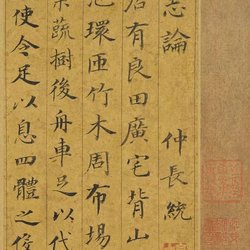 志論 仲長統
居有良田廣宅背山
池環匝竹木周布場
果蔬樹後舟車足以代
使令足以息四體之役